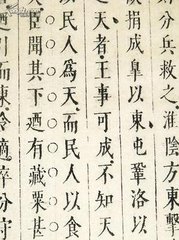 分兵救之。淮陰方東擊
捐成皋以東屯鞏洛以
天者王事可成不知天
以民人爲天而民人以食
臣聞其下迺有藏粟甚
迺引而東令適卒分守